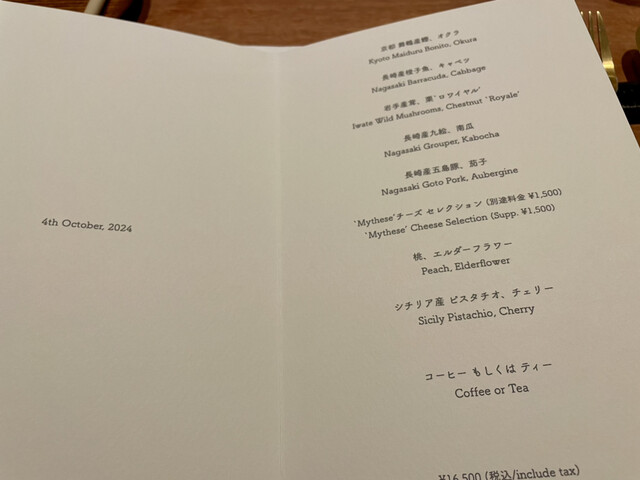 4th October, 2024
京都 舞鶴産鰹、オクラ
Kyoto Maiduru Bonito, Okura
長崎産梭子魚、キャベツ
Nagasaki Barracuda, Cabbage
岩手産茸、栗‘ロワイヤル’
Iwate Wild Mushrooms, Chestnut ‘Royale’
長崎産九絵、南瓜
Nagasaki Grouper, Kabocha
長崎産五島豚、茄子
Nagasaki Goto Pork, Aubergine
‘Mythese’チーズ セレクション (別途料金 ¥1,500)
‘Mythese’ Cheese Selection (Supp. ¥1,500)
桃、エルダーフラワー
Peach, Elderflower
シチリア産 ピスタチオ、チェリー
Sicily Pistachio, Cherry
コーヒー もしくは ティー
Coffee or Tea
¥16,500 (税込/include tax)